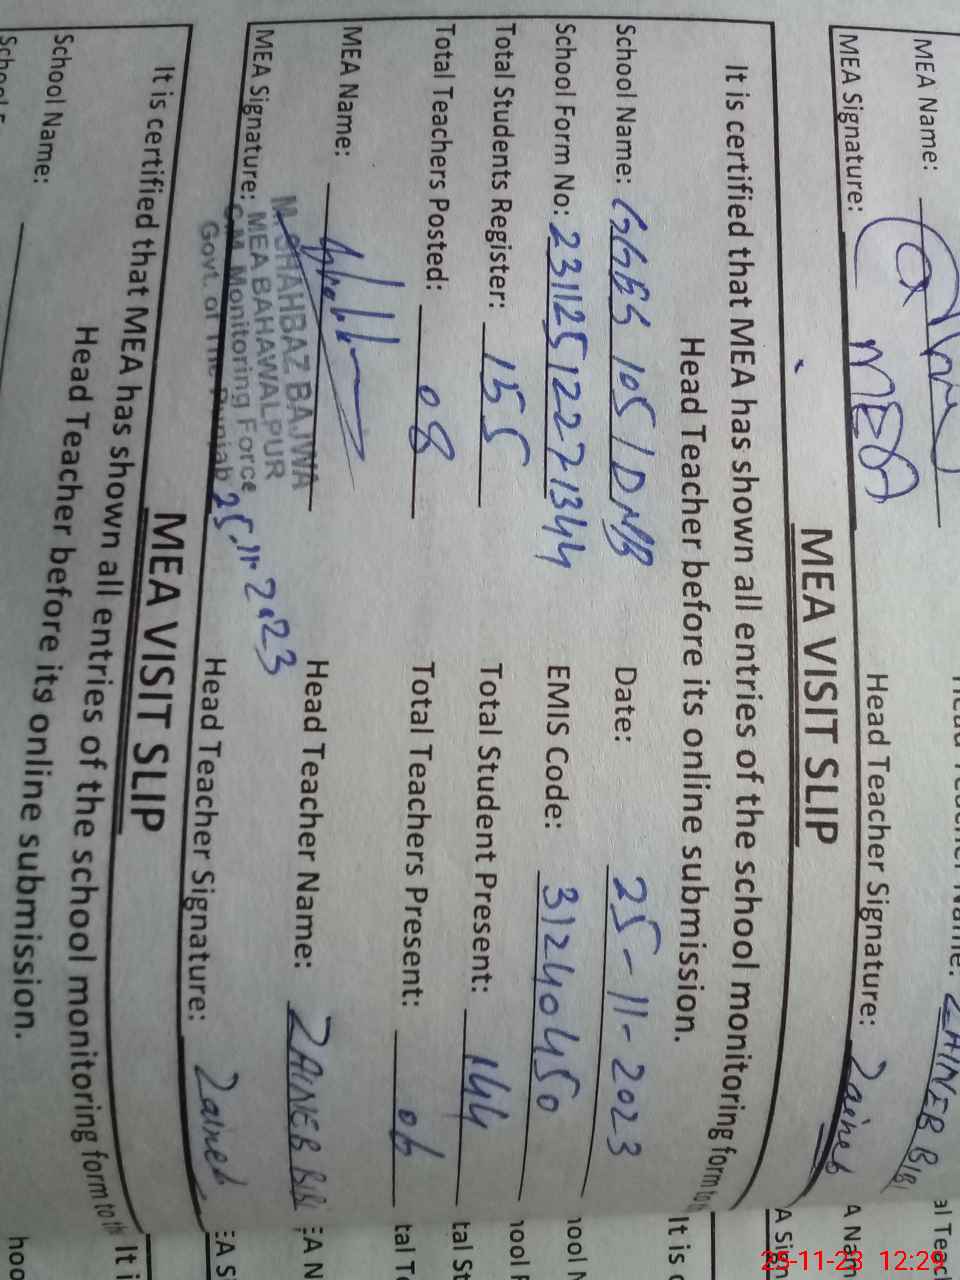 MEA Name:
Head Teacher Name: ZAINEB BIBI
MEA Signature: MEA Head Teacher Signature: Zaineb
MEA VISIT SLIP
It is certified that MEA has shown all entries of the school monitoring form to
Head Teacher before its online submission.
School Name: GGES 105/DNB Date: 25-11-2023
School Form No: 23112512271344 EMIS Code: 31240450
Total Students Register: 155 Total Student Present: 144
Total Teachers Posted: 08 Total Teachers Present: 06
MEA Name: Head Teacher Name: ZAINEB BIBI
M. SHAHBAZ BAJWA
MEA Signature: MEA BAHAWALPUR
C.M. Monitoring Force
Govt. of The Punjab 25.11.2023 Head Teacher Signature: Zaineb
MEA VISIT SLIP
It is certified that MEA has shown all entries of the school monitoring form to th
Head Teacher before its online submission.
School Name:
A Nam
A Sign
It is c
It i
25-11-23 12:29